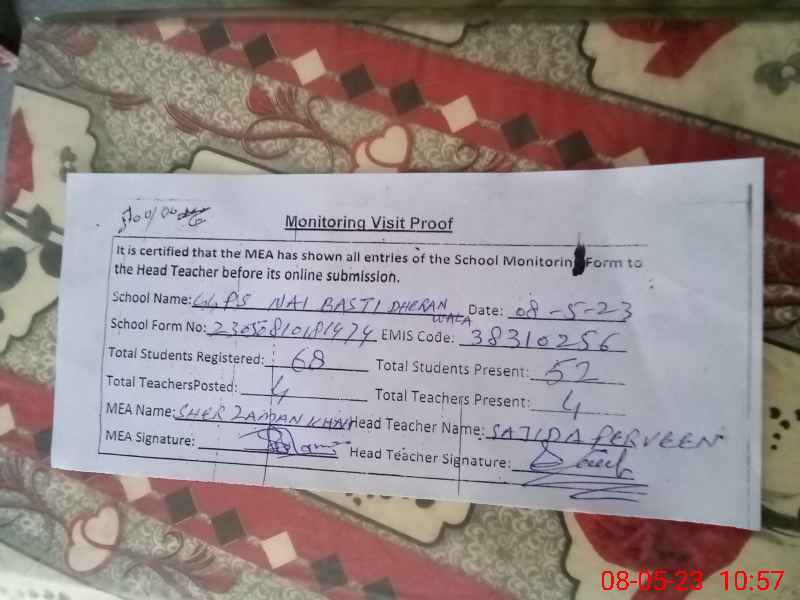 Monitoring Visit Proof
It is certified that the MEA has shown all entries of the School Monitoring Form to
the Head Teacher before its online submission.
School Name: GGPS NAI BASTI DHERAN WALA Date: 08-5-23
School Form No: EMIS Code: 38310256
Total Students Registered: 68 Total Students Present: 52
Total TeachersPosted: 4 Total Teachers Present: 4
MEA Name: SHER ZAMAN KHAN Head Teacher Name: SAJIDA PERVEEN
MEA Signature: Head Teacher Signature:
08-05-23 10:57